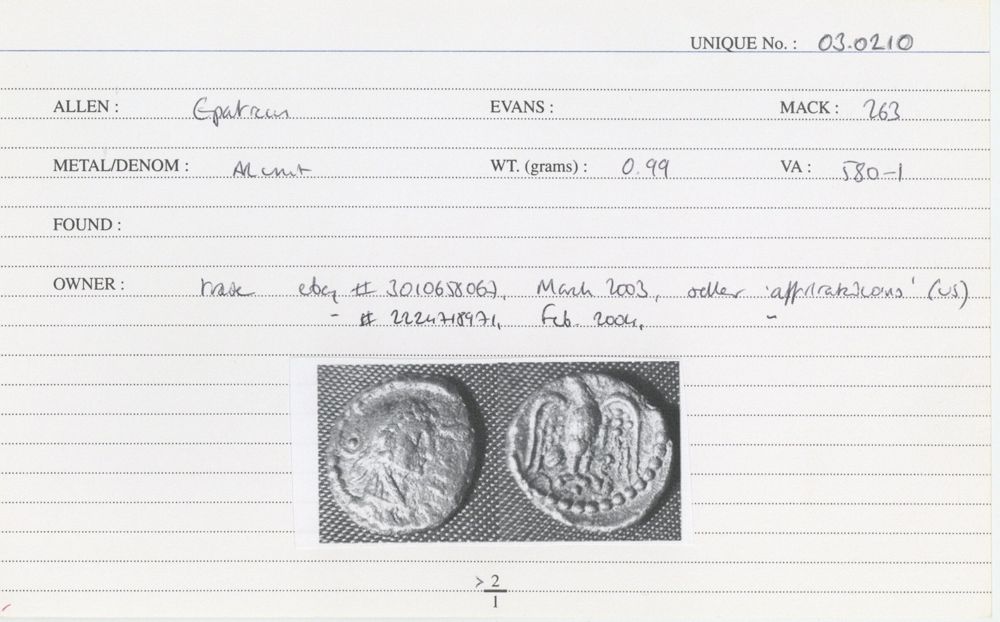 UNIQUE No. : 03.0210
ALLEN : Epaticcus EVANS : MACK : 263
METAL/DENOM : AR unit WT. (grams) : 0.99 VA : 580-1
FOUND :
OWNER : trade ebay # 3010658067, March 2003, seller (US)
- # 2224718971, Feb. 2004, "
> 2
1